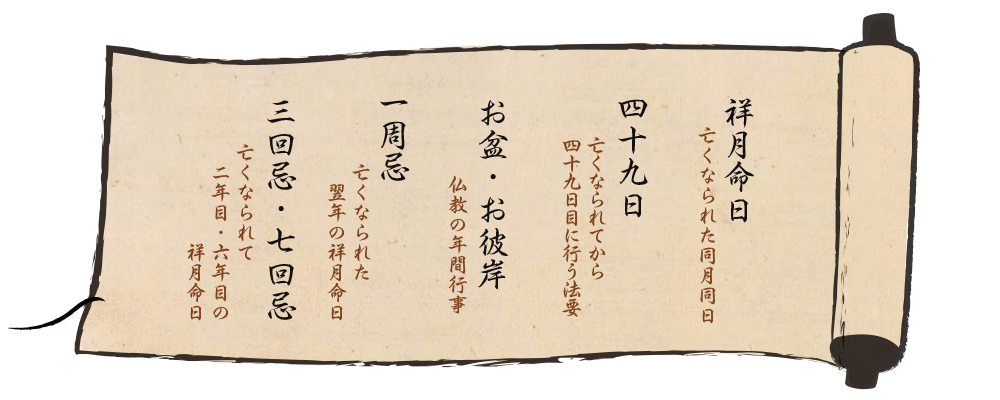 祥月命日
亡くなられた同月同日
四十九日
亡くなられてから
四十九日目に行う法要
お盆・お彼岸
仏教の年間行事
一周忌
亡くなられた
翌年の祥月命日
三回忌・七回忌
亡くなられて
二年目・六年目の
祥月命日